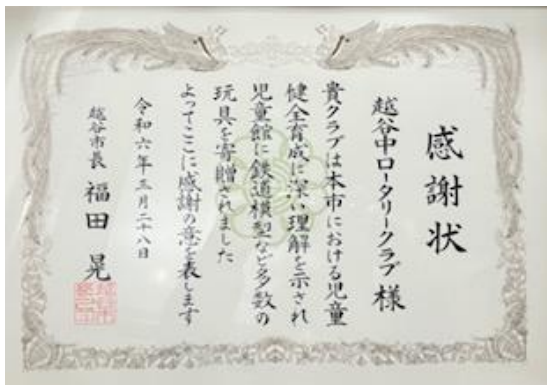 感謝状
越谷中ロータリークラブ様
貴クラブは本市における児童
健全育成に深い理解を示され
児童館に鉄道模型など多数の
玩具を寄贈されました
よってここに感謝の意を表します
令和六年三月二十八日
越谷市長 福田 晃